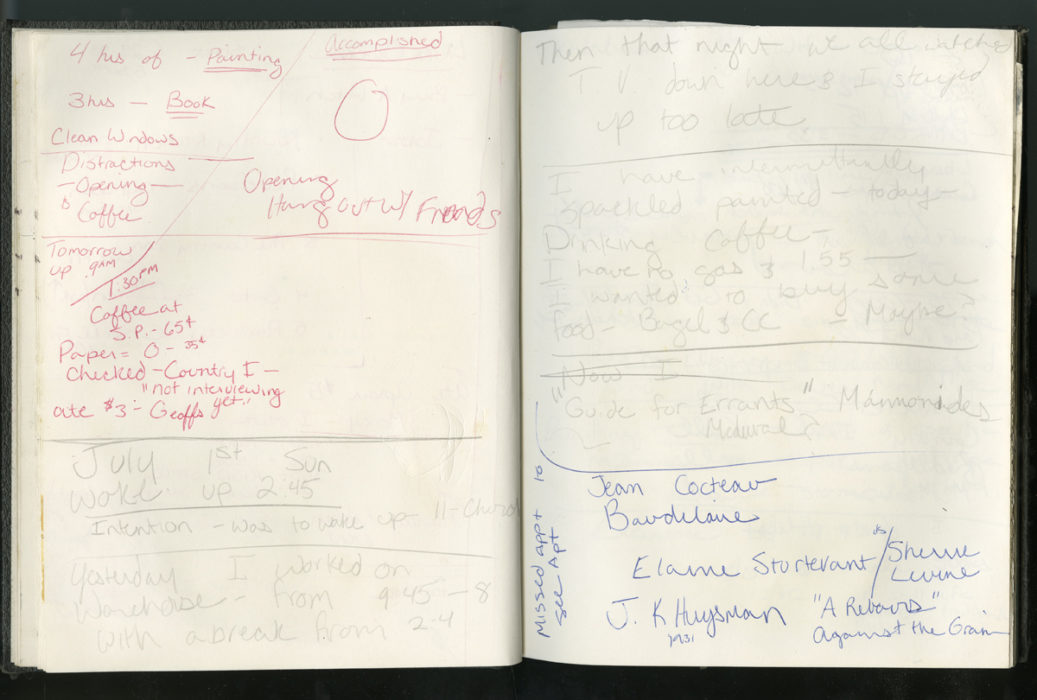 4 hrs of - Painting
Accomplished
3 hrs - Book
O
Clean Windows
Distractions
- Opening -
& Coffee
Opening
Hang out w/ Friends
Tomorrow
up 9AM
1:30 PM
Coffee at
S.P. - 65¢
Paper = 0 - 35¢
Checked - Country I -
"not interviewing
yet."
ate $3 - Geoffs
July 1st Sun
woke up 2:45
Intention - was to wake up 11 - Church
Yesterday I worked on
Warehouse - from 9:45 - 8
with a break from 2-4
Then that night we all watched
T.V. down here & I stayed
up too late
I have intermittently
spackled painted - today -
Drinking Coffee -
I have no gas & 1.55 -
I wanted to buy some
food - Bagel & CC - Maybe?
Now I
"Guide for Errants" Maimonides
Missed appt to
see Apt
Jean Cocteau
Baudelaire
Elaine Sturtevant / vs Sherrie
Levine
J. K Huysman "A Rebours"
1931 Against the Grain